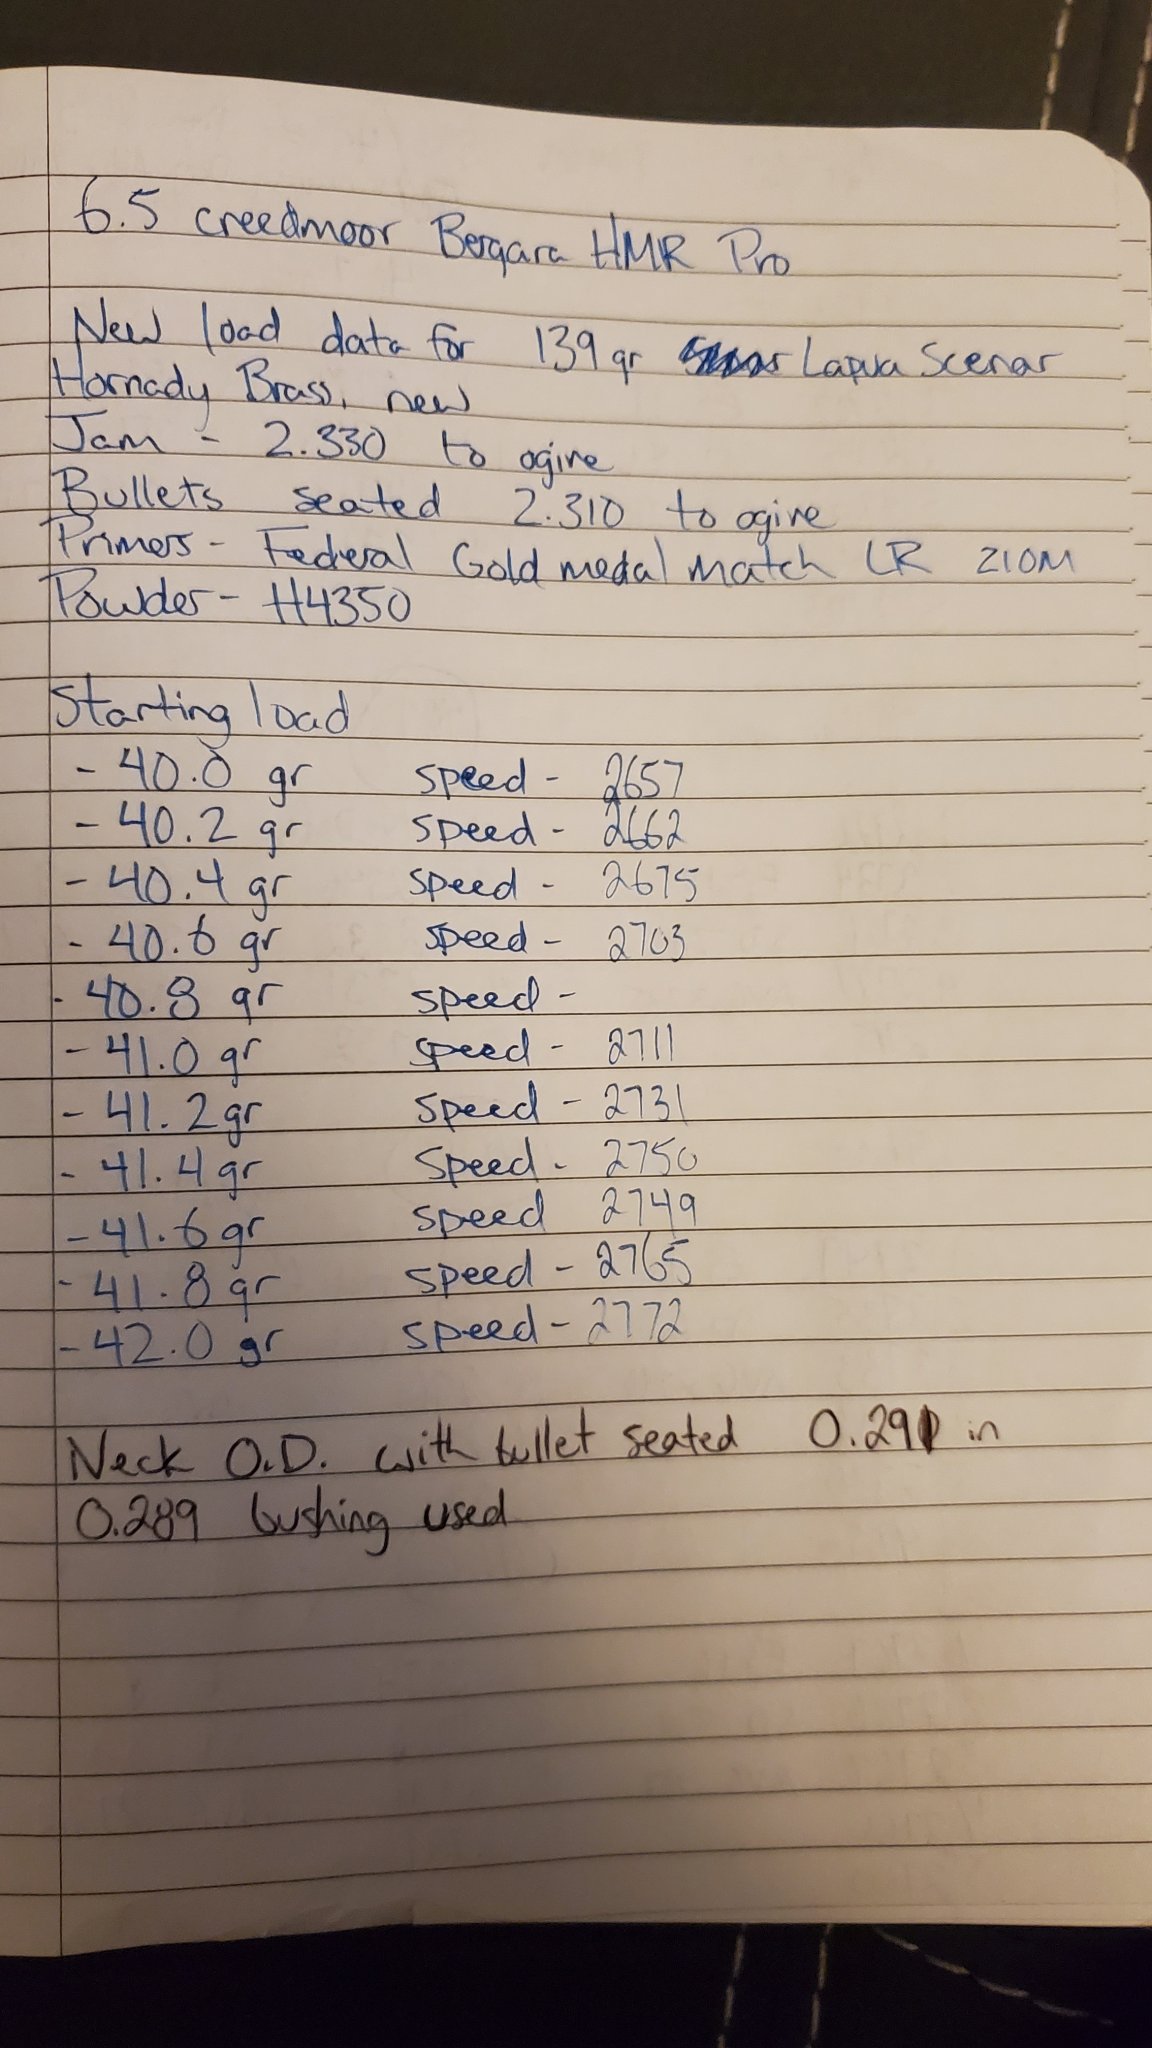 6.5 creedmoor Bergara HMR Pro
New load data for 139 gr Lapua Scenar
Hornady Brass, new
Jam - 2.330 to ogive
Bullets seated 2.310 to ogive
Primers - Federal Gold medal match LR 210M
Powder - H4350
Starting load
- 40.0 gr speed - 2657
- 40.2 gr speed - 2662
- 40.4 gr speed - 2675
- 40.6 gr speed - 2703
- 40.8 gr speed -
- 41.0 gr speed - 2711
- 41.2 gr speed - 2731
- 41.4 gr speed - 2750
- 41.6 gr speed 2749
- 41.8 gr speed - 2765
- 42.0 gr speed - 2772
Neck O.D. with bullet seated 0.291 in
0.289 bushing used